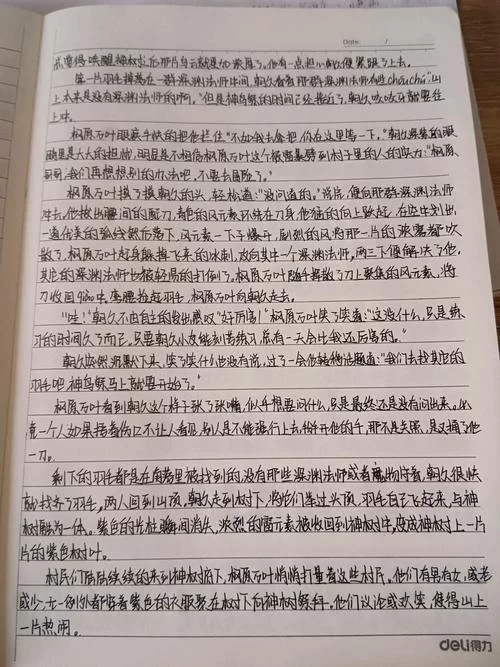 Date
第一片羽毛掉落在一群深渊法师中间,朝久看着那群深渊法师有些chóuchú"山
上本来是没有深渊法师的啊。"但是神鸟祭的时间已经接近了,朝久咬咬牙就要往
上冲。
枫原万叶眼疾手快的把他拦住"不如我去拿把,你在这里等一下。"朝久深紫的眼
睛里是大大的担忧,明显是不相信枫原万叶这个被雷暴劈到村子里的人的实力:"枫原
哥哥,我们再想想别的办法吧,不要去冒险了。"
枫原万叶摸了摸朝久的头,轻松道:"没问道的。"说后,便向那群深渊法师
冲去。他拔出腰间的配刀,青色的风元素环绕在刀身,他猛的向上跃起,在空中划出
一道优美的弧线然后落下,风元素一下子爆开,剧烈的风将那一片的浓雾都吹
散了,枫原万叶起身躲掉飞来的冰刺,攻向其中一个深渊法师,两三下便解决了他,
其它的深渊法师也被轻易的打倒了,枫原万叶随手挥散了刀上聚集的风元素,将
刀收回鞘中,弯腰拾起羽毛,枫原万叶向朝久走去。
"哇!"朝久不由自主的发出感叹"好厉害!"枫原万叶笑了笑道:"这没什么,只是练
习的时间久了而已。只要朝久小友能刻苦练习,总有一天会比我还厉害的。"
朝久突然沉默下来,笑了笑什么也没有说,过了一会他转移话题道:"我们去找其它的
羽毛吧,神鸟祭马上就要开始了。"
枫原万叶看到朝久这个样子张了张嘴,似乎想要问什么,只是最终还是没有问出来。似
竟一个人如果捂着伤口不让人看见,别人是不能强行上去掰开他的手,那不是关照,是又捅了他
一刀。
剩下的羽毛都是在角落里被找到的,没有那些深渊法师或者魔物守着,朝久很快
就找齐了羽毛,两人回到山顶,朝久走到树下,将它们举过头顶,羽毛自己飞起来,与神
树融为一体。紫色的光柱瞬间消失,浓烈的雷元素被收回到神树中,变成神树上一片
片的紫色树叶。
村民们陆陆续续的来到神树底下,枫原万叶悄悄打量着这些村民。他们有男有女,或老
或少,无一例外都穿着紫色的衣服聚在树下向神树祭拜。他们议论或欢笑,使得山上
一片热闹。
deli得力